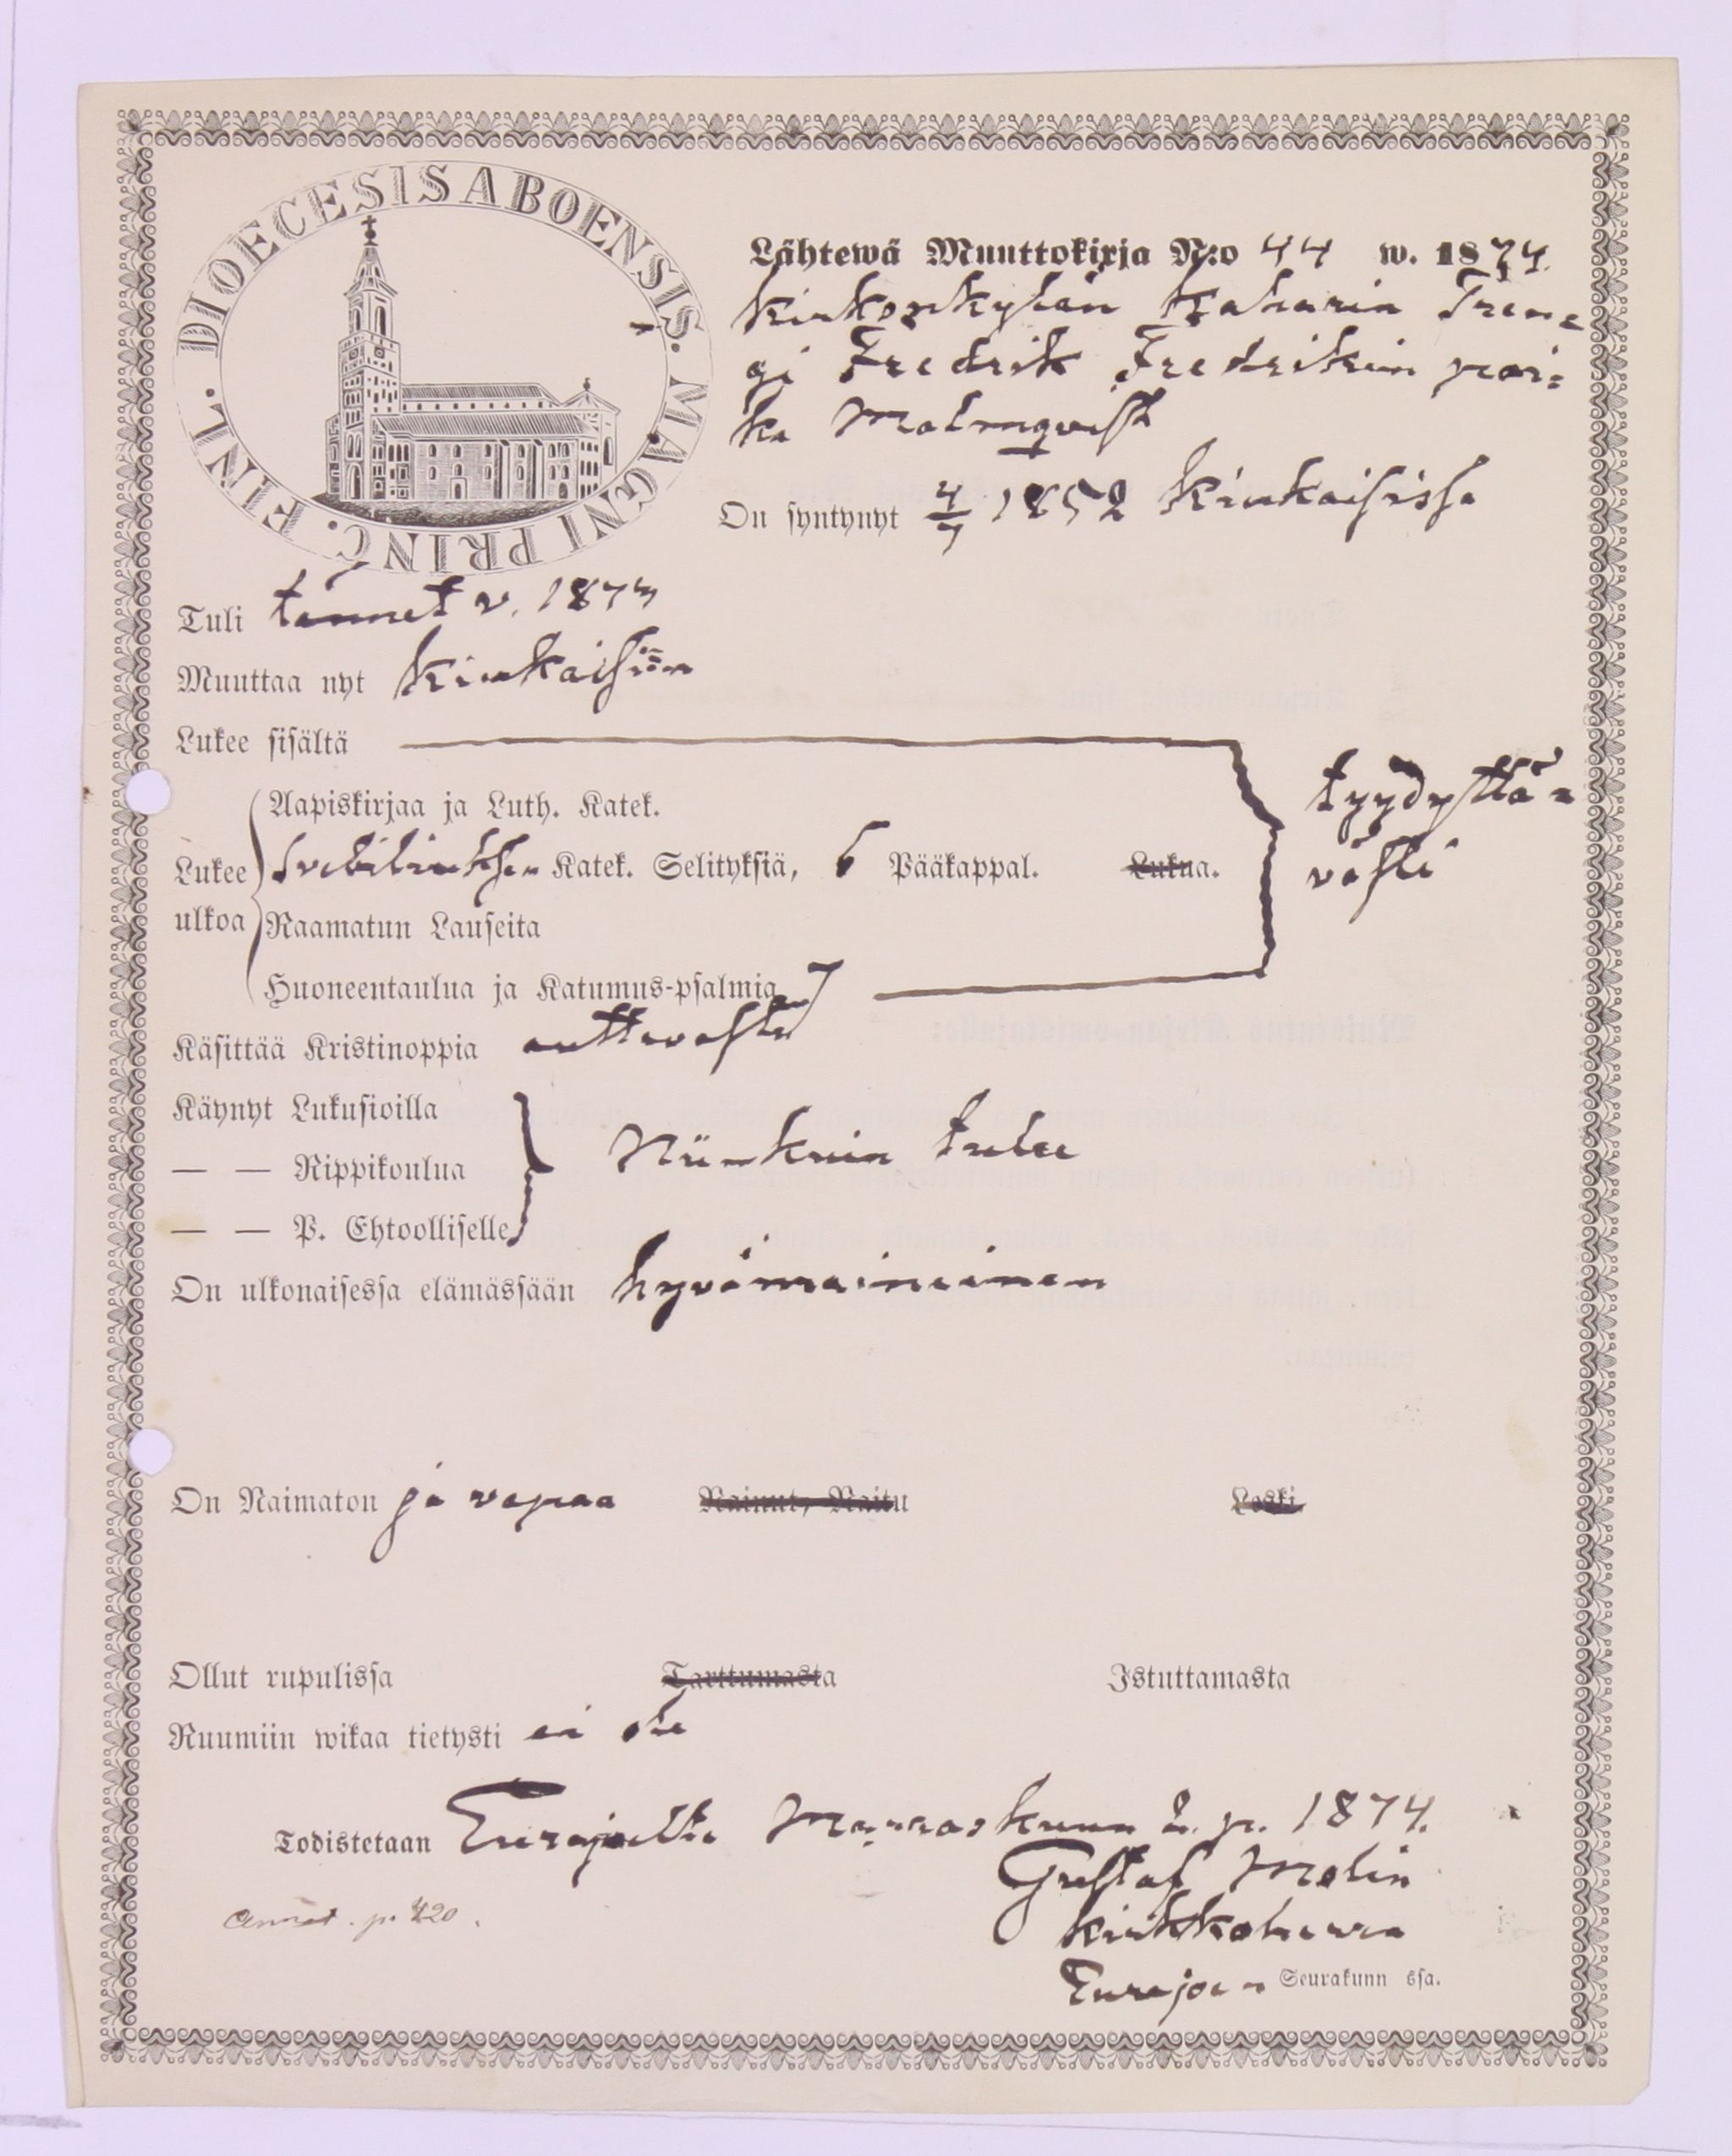 DIOECESIS ABOENSIS. MAGNI PRINC. FINL.
Lähtewä Muuttokirja N:o 44 w. 1874.
kirkonkylän Kaharin Tren=
gi Fredrik Fredrikin poi=
ka Malmqvist
On syntynyt 4/7 1852 Kiukaisissa
Tuli tännet v. 1873
Muuttaa nyt Kiukaisiin
Lukee sisältä
tyydyttä=
västi
Aapiskirjaa ja Luth. Katek.
Lukee Svebiliuksen Katek. Selityksiä, 6 Pääkappal. Lukua.
ulkoa Raamatun Lauseita
Huoneentaulua ja Katumus-psalmia 7
Käsittää Kristinoppia auttavasti
Käynyt Lukusioilla
— — Rippikoulua Niinkuin tulee
— — P. Ehtoolliselle
On ulkonaisessa elämässään hyvämaineinen
On Naimaton ja vapaa Nainut, Naitu Leski.
Ollut rupulissa Tarttumasta Istuttamasta
Ruumiin wikaa tietysti ei ole
Todistetaan Eurajoella Marraskuun 2. p. 1874.
Gustaf Molin
kirkkoherra
Annot. p. 420.
Eurajoen Seurakunn ssa.